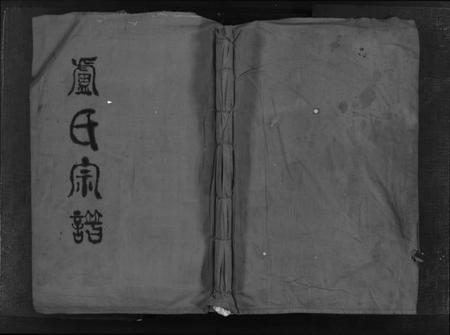 盧氏宗譜